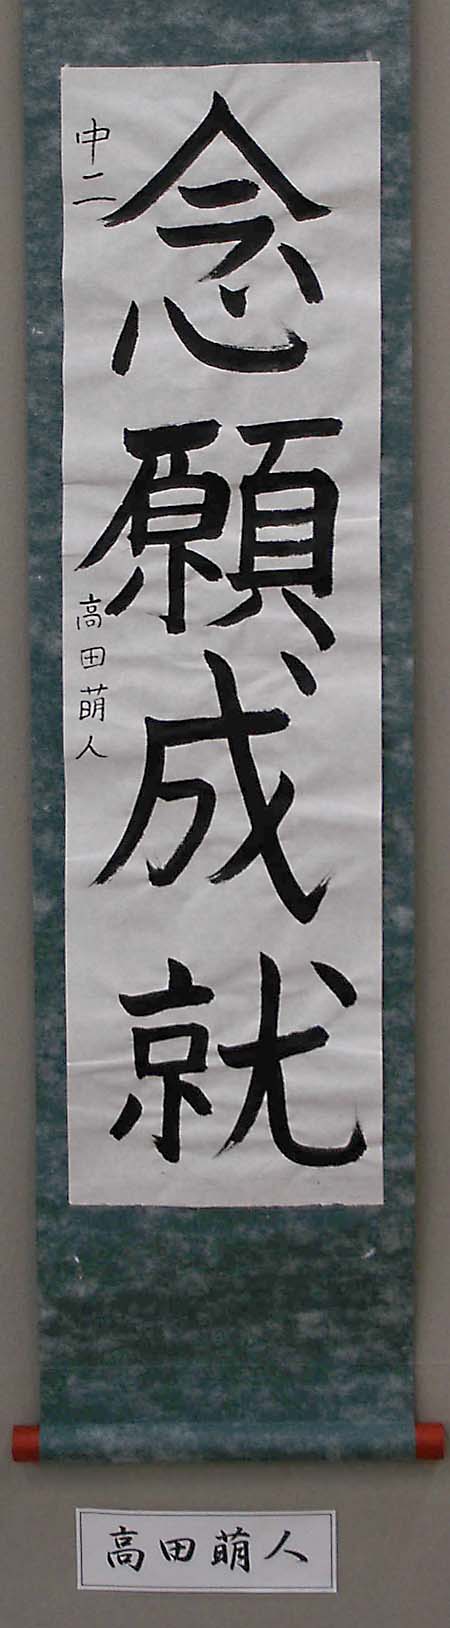 念願成就
中二 高田萌人
高田萌人